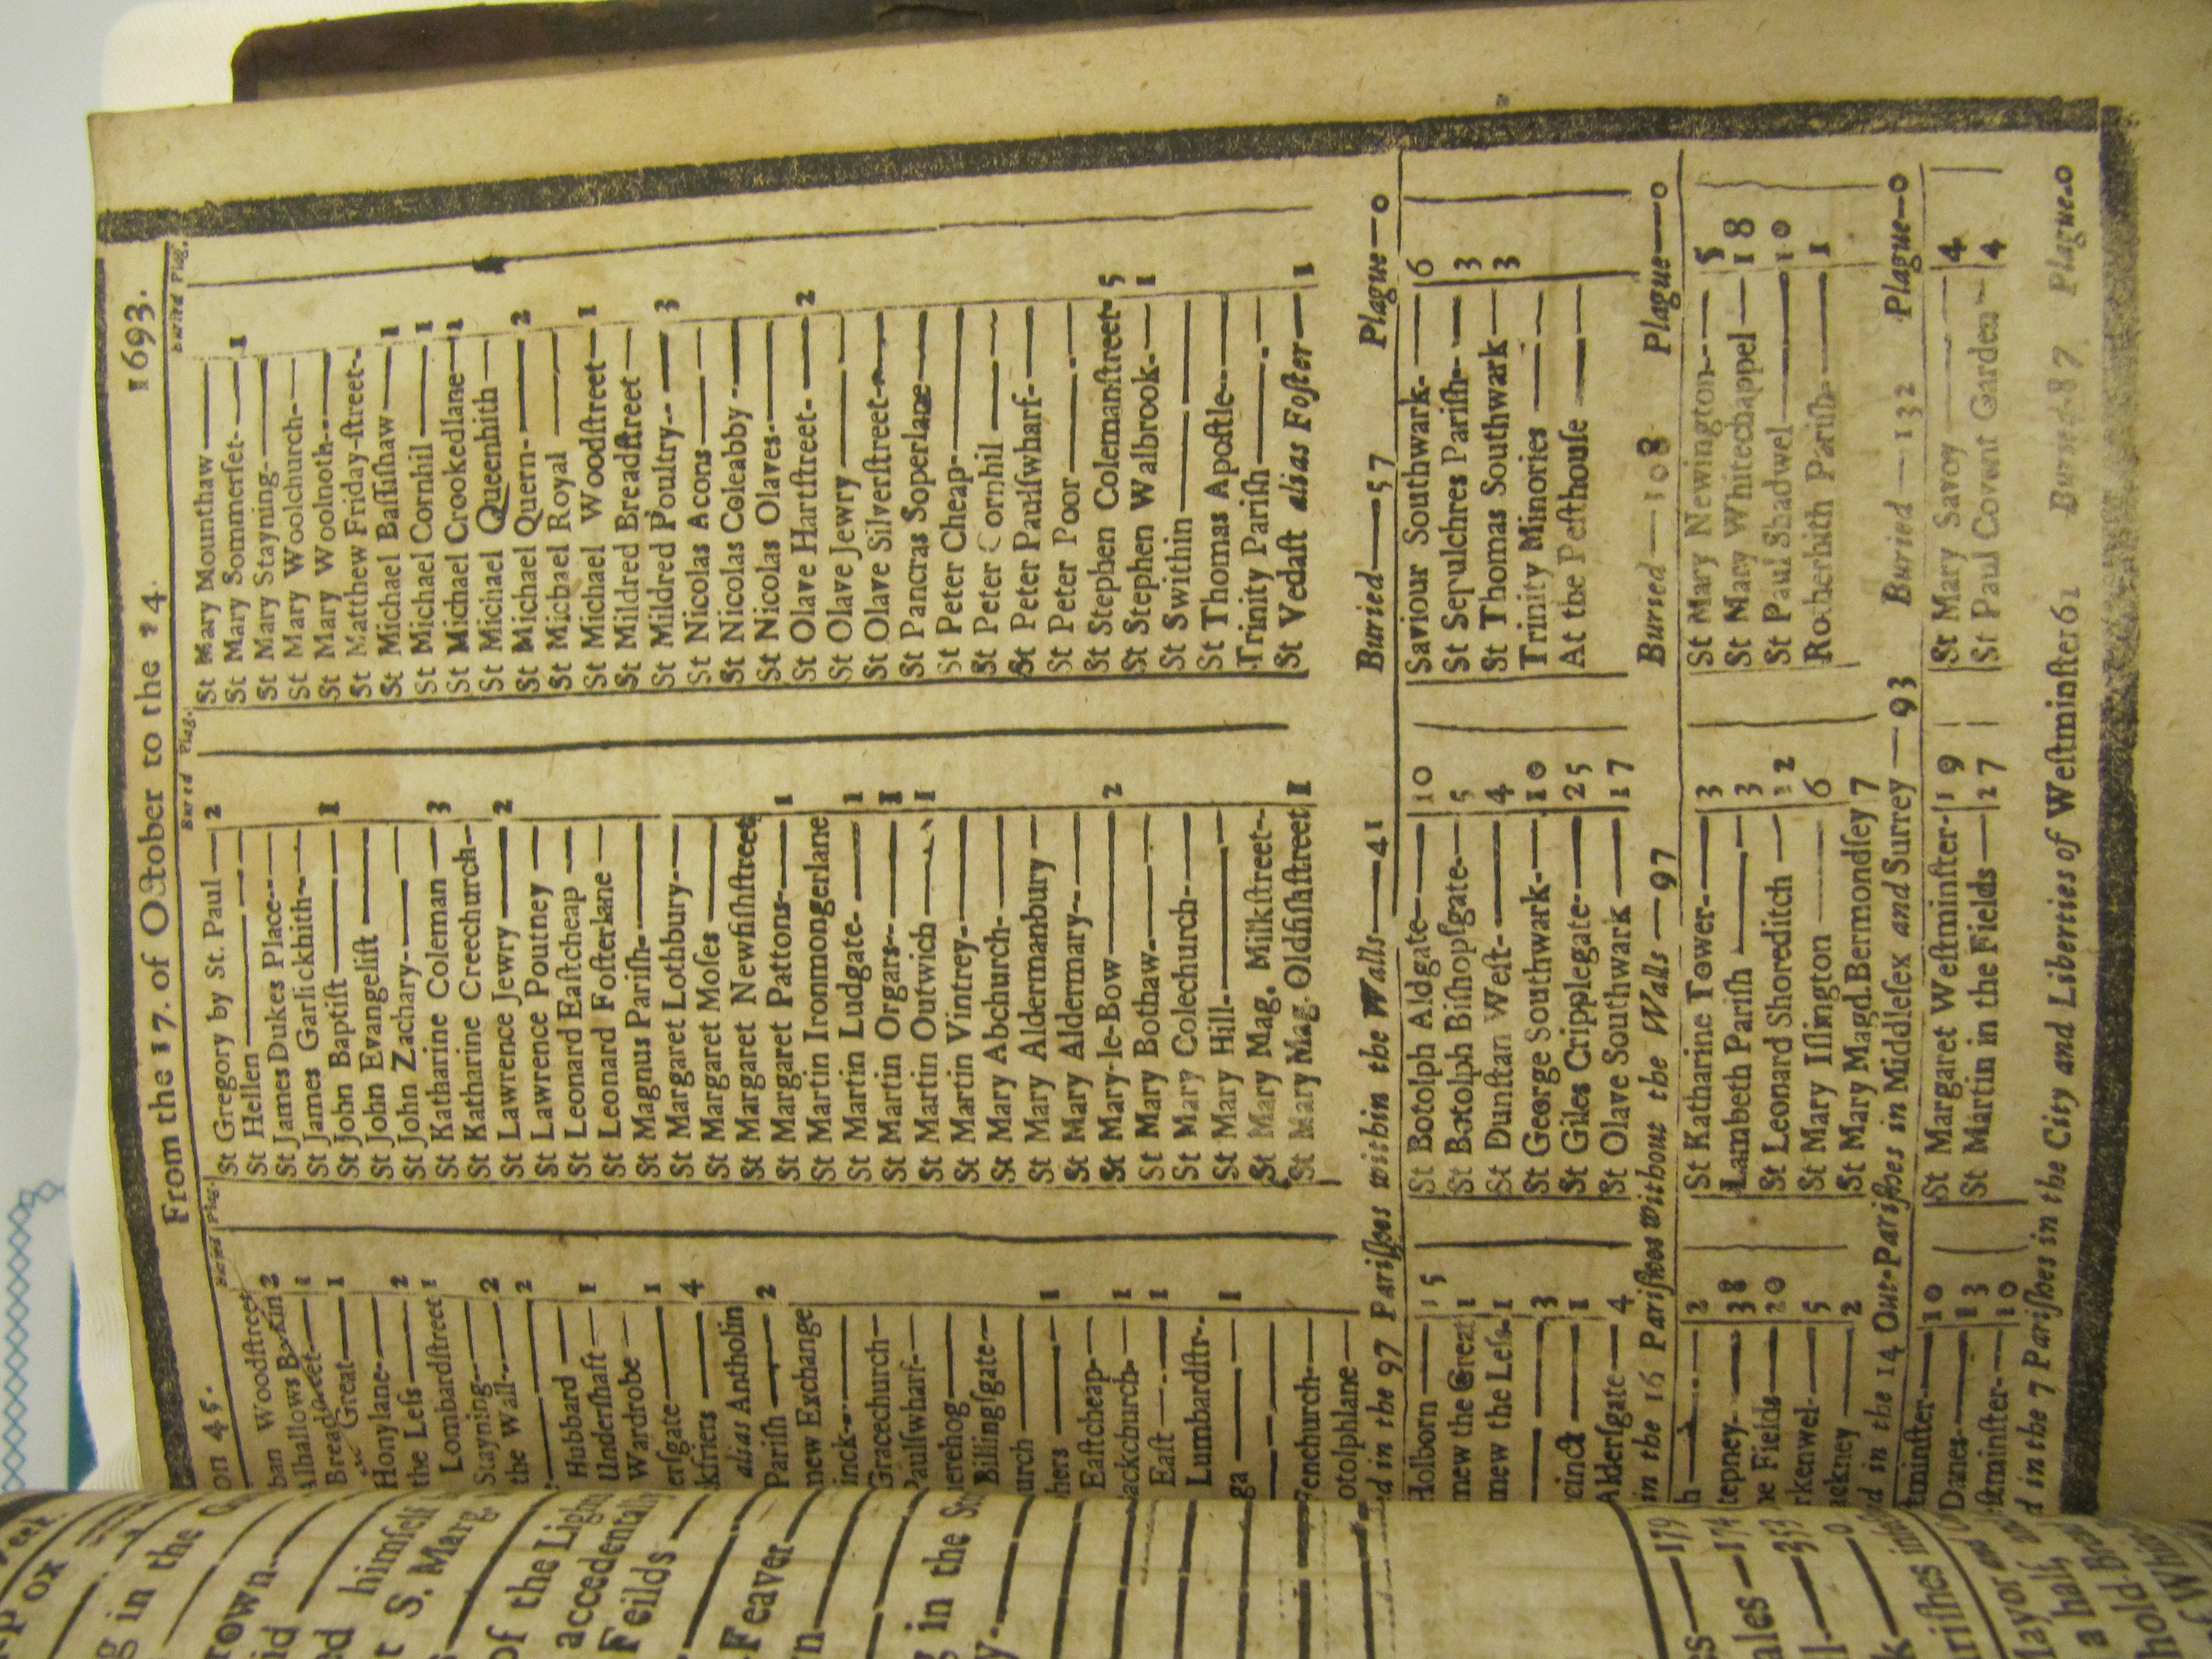 on 45. From the 17. of October to the 24. 1693.
Buried Plag. Bur ed Plag. Buried Plag.
ban Woodſtreet
Alhallows Barkin 2
Breadſtreet 1
Great 1
Hony lane 2
the Leſs 2
Lombardſtreet 1
Stayning 2
the Wall 2
Hubbard
Underſhaft 1
Wardrobe
erſgate 1
kfriers 4
alias Antholin
Pariſh 2
new Exchange
inck
Gracechurch
Paulſwharf
erehog
Billingſgate
urch
hers 1
Eaſtcheap
ackchurch 1
Eaſt 1
Lumbardſtr
ga 1
Fenchurch
otolphlane
St Gregory by St. Paul 2
St Hellen
St James Dukes Place
St James Garlickhith
St John Baptiſt 1
St John Evangeliſt
St John Zachary
St Katharine Coleman 3
St Katharine Creechurch
St Lawrence Jewry 2
St Lawrence Poutney
St Leonard Eaſtcheap
St Leonard Foſterlane
St Magnus Pariſh
St Margaret Lothbury
St Margaret Moſes
St Margaret Newfiſhſtreet
St Margaret Pattons 1
St Martin Ironmongerlane
St Martin Ludgate 1
St Martin Orgars 1
St Martin Outwich 1
St Martin Vintrey
St Mary Abchurch
St Mary Aldermanbury
St Mary Aldermary
St Mary-le-Bow 2
St Mary Bothaw
St Mary Colechurch
St Mary Hill
St Mary Mag. Milkſtreet
St Mary Mag. Oldfiſhſtreet 1
St Mary Mounthaw
St Mary Sommerſet 1
St Mary Stayning
St Mary Woolchurch
St Mary Woolnoth
St Matthew Friday-ſtreet
St Michael Baſſiſhaw 1
St Michael Cornhil 1
St Michael Crookedlane 1
St Michael Queenhith
St Michael Quern 2
St Michael Royal
St Michael Woodſtreet 1
St Mildred Breadſtreet
St Mildred Poultry 3
St Nicolas Acons
St Nicolas Coleabby
St Nicolas Olaves
St Olave Hartſtreet 2
St Olave Jewry
St Olave Silverſtreet
St Pancras Soperlane
St Peter Cheap
St Peter Cornhil
St Peter Paulſwharf
St Peter Poor
St Stephen Colemanſtreet 5
St Stephen Walbrook 1
St Swithin
St Thomas Apoſtle
Trinity Pariſh
St Vedaſt alias Foſter 1
d in the 97 Pariſhes within the Walls 41 Buried 57 Plague 0
Holborn 15
mew the Great 1
mew the Leſs 1
3
cinct 1
Alderſgate 4
St Botolph Aldgate 10
St Botolph Biſhopſgate 5
St Dunſtan Weſt 4
St George Southwark 10
St Giles Cripplegate 25
St Olave Southwark 17
Saviour Southwark 6
St Sepulchres Pariſh 3
St Thomas Southwark 3
Trinity Minories
At the Peſthouſe
in the 16 Pariſhes without the Walls 97 Buried 108 Plague 0
2
tepney 38
he Fields 20
rkenwel 5
ackney 2
St Katharine Tower 3
Lambeth Pariſh 3
St Leonard Shoreditch 12
St Mary Iſlington 6
St Mary Magd. Bermondſey 7
St Mary Newington 5
St Mary Whitechappel 18
St Paul Shadwel 10
Rotherhith Pariſh 1
d in the 14 Out-Pariſhes in Middleſex and Surrey 93 Buried 132 Plague 0
tminſter 10
Danes 13
ſtminſter 10
St Margaret Weſtminſter 19
St Martin in the Fields 27
St Mary Savoy 4
St Paul Covent Garden 4
d in the 7 Pariſhes in the City and Liberties of Weſtminſter 61 Buried 87 Plague 0
g in the
rown
himſelf
t S. Marg.
of the Ligh
accedentall
Feilds
Feaver
g in the S
179
ales 174
353
0
ariſhes
Mayor and
a half
hold-B
of Whi